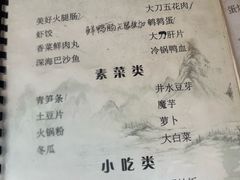 美好火腿肠
大刀五花肉
虾饺
鹌鹑蛋
香菜鲜肉丸
大刀肝片
深海巴沙鱼
冷锅鸭血
素菜类
青笋条
井水豆芽
土豆片
魔芋
火锅粉
萝卜
冬瓜
大白菜
小吃类